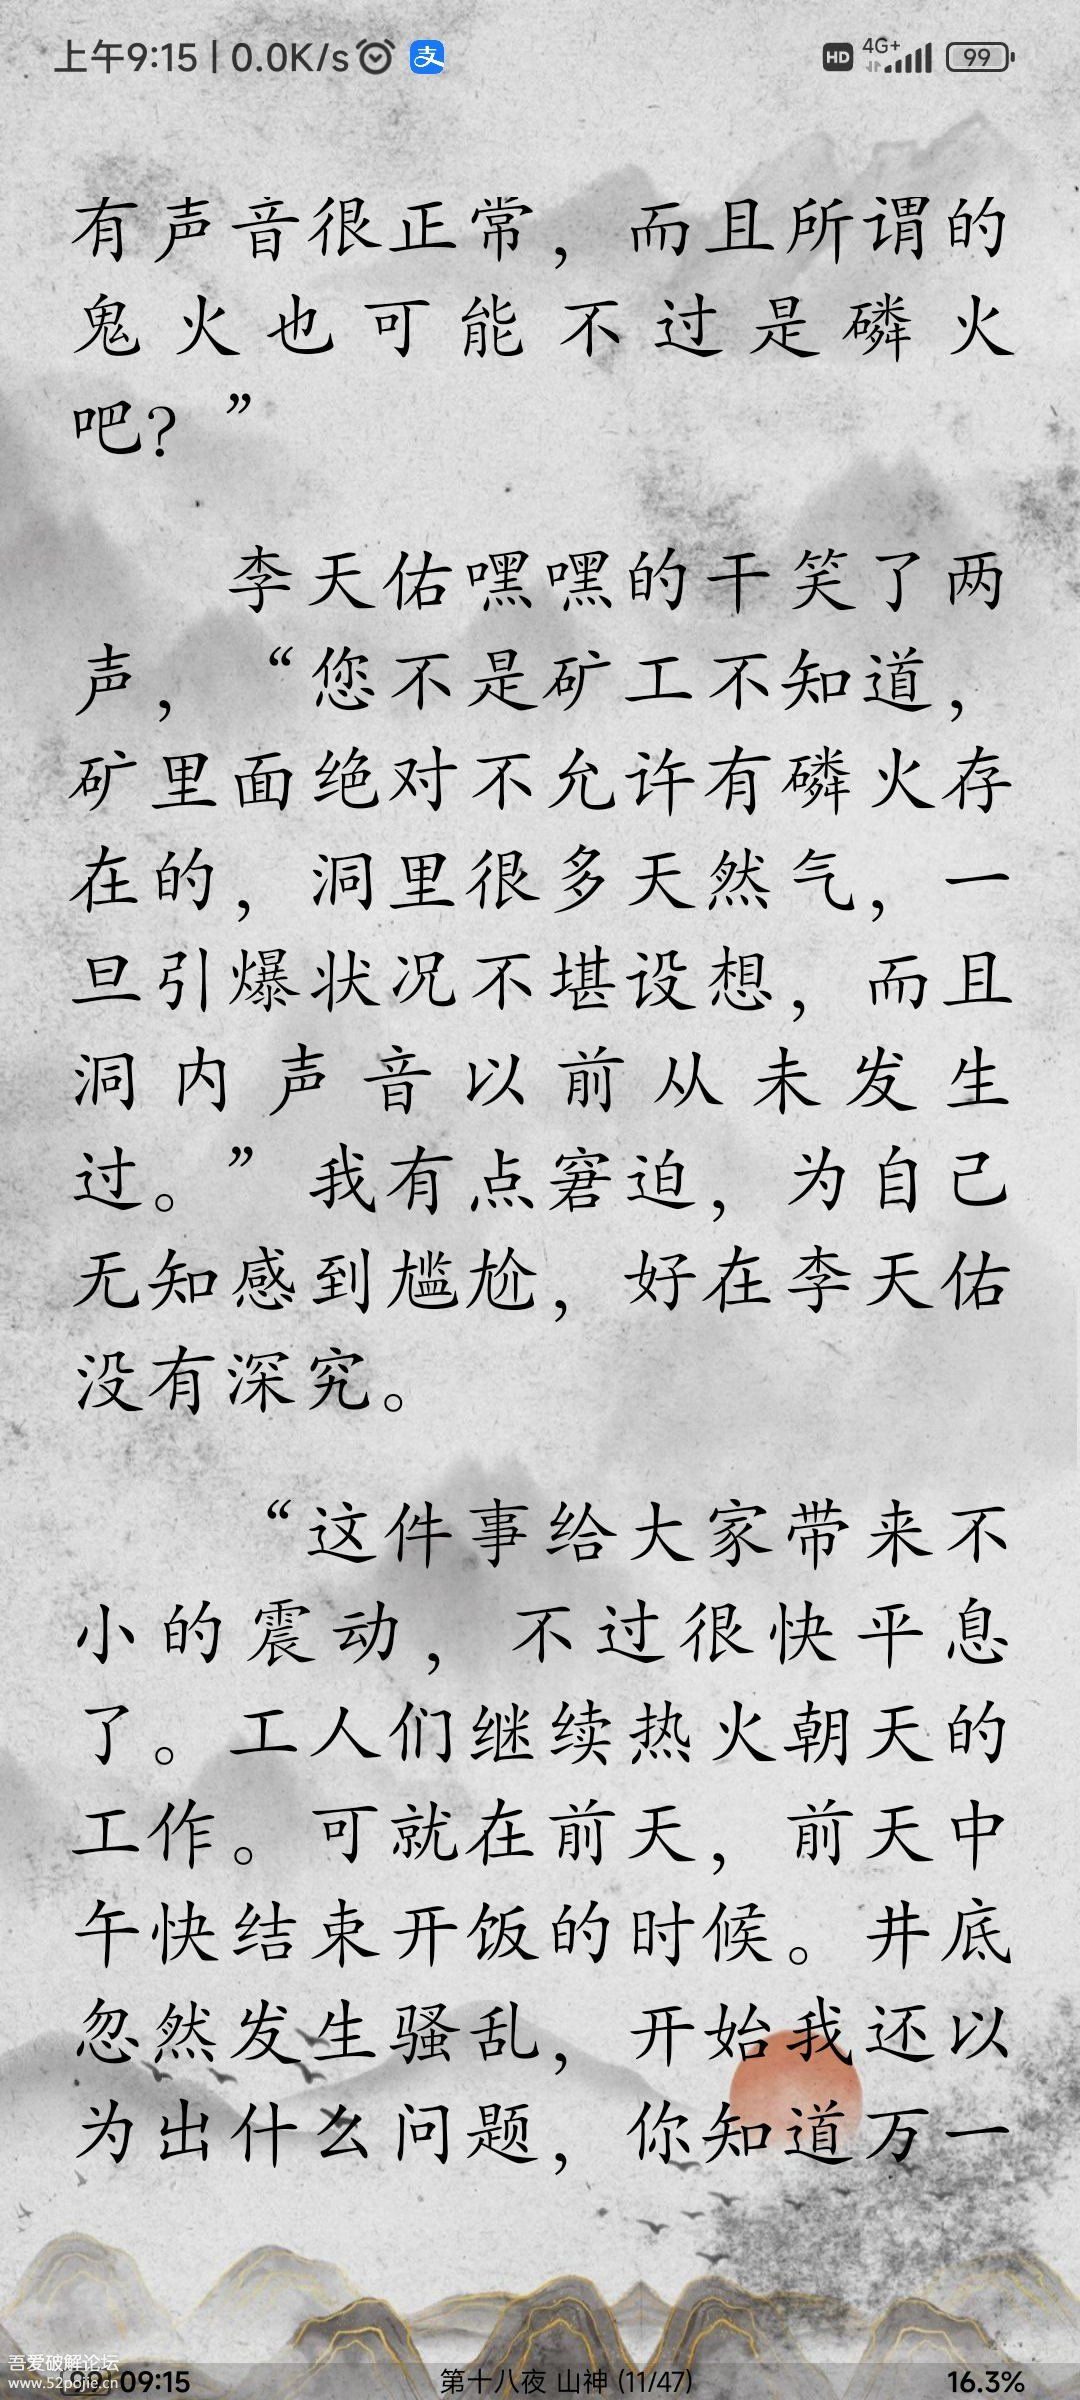 上午9:15 | 0.0K/s 支 HD 4G+ 99
有声音很正常，而且所谓的
鬼火也可能不过是磷火
吧？”
李天佑嘿嘿的干笑了两
声，“您不是矿工不知道，
矿里面绝对不允许有磷火存
在的，洞里很多天然气，一
旦引爆状况不堪设想，而且
洞内声音以前从未发生
过。”我有点窘迫，为自己
无知感到尴尬，好在李天佑
没有深究。
“这件事给大家带来不
小的震动，不过很快平息
了。工人们继续热火朝天的
工作。可就在前天，前天中
午快结束开饭的时候。井底
忽然发生骚乱，开始我还以
为出什么问题，你知道万一
吾爱破解论坛
www.52pojie.cn
99 09:15 第十八夜 山神 (11/47) 16.3%